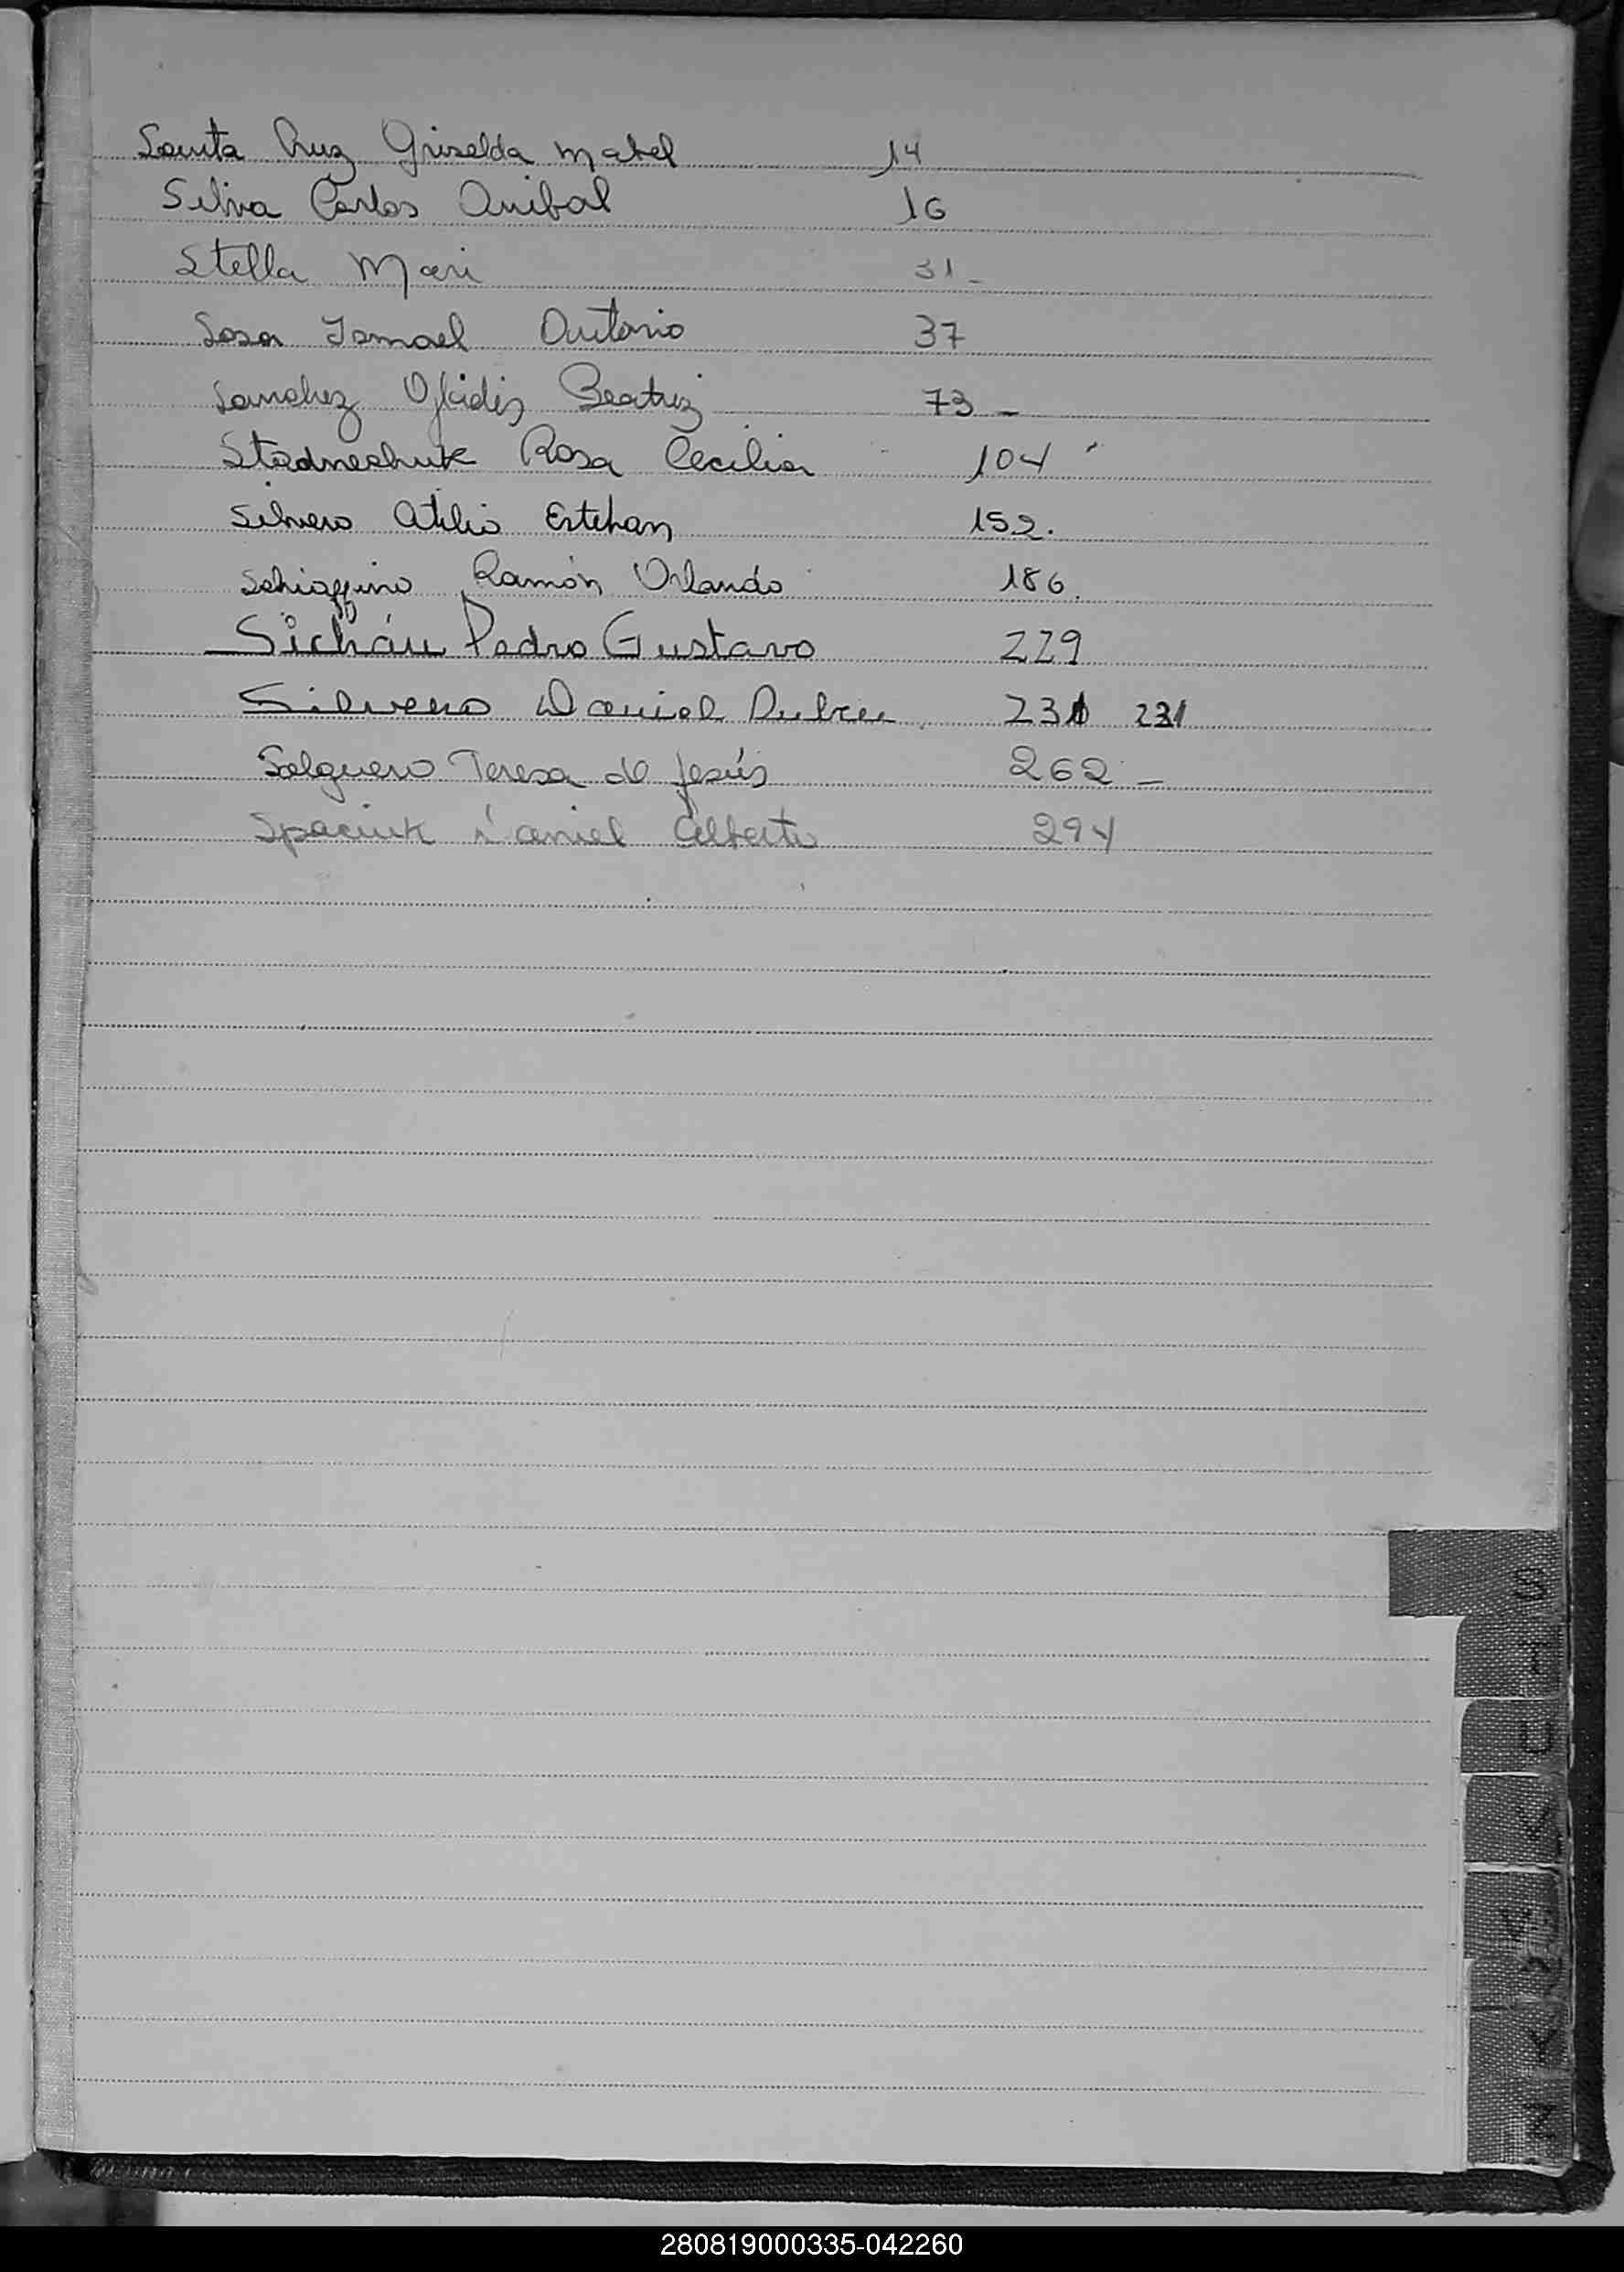 Santa Cruz Griselda Mabel 14
Silva Carlos Anibal 16
Stella Mari 31 -
Sosa Ismael Antonio 37
Sanchez Beatriz 73 -
Stadnechuk Rosa Cecilia 104
Silvero Atilio Esteban 152.
Schiaffino Ramón Orlando 186.
Sicháu Pedro Gustavo 229
Silvero Daniel 231 231
Salguero Teresa de Jesús 262 -
Spaciuk Daniel Alberto 294
S
T
U
V
Z
280819000335-042260